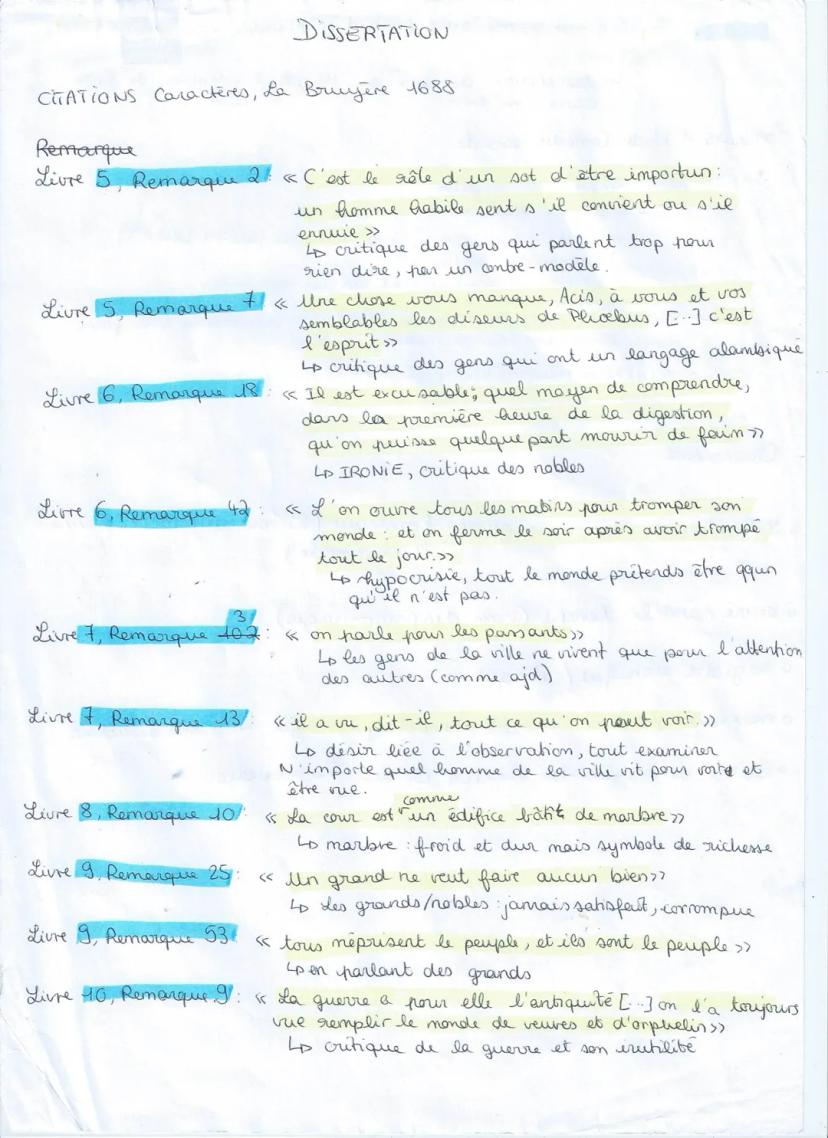 DISSERTATION
CITATIONS Caractères, La Bruyère 1688
Remarque
Livre 5, Remarque 2 : « C'est le rôle d'un sot d'être importun :
un homme habile sent s'il convient ou s'il
ennuie »
↳ critique des gens qui parlent trop pour
rien dire, par un contre-modèle.
Livre 5, Remarque 7 « Une chose vous manque, Acis, à vous et vos
semblables les diseurs de Phoebus, [...] c'est
l'esprit »
↳ critique des gens qui ont un langage alambiqué
Livre 6, Remarque 18 : « Il est excusable ; quel moyen de comprendre,
dans la première heure de la digestion,
qu'on puisse quelque part mourir de faim »
↳ IRONIE, critique des nobles
Livre 6, Remarque 42 : « L'on ouvre tous les matins pour tromper son
monde : et on ferme le soir après avoir trompé
tout le jour. »
↳ hypocrisie, tout le monde prétends être qqun
qu'il n'est pas.
3
Livre 7, Remarque 102 : « on parle pour les passants »
↳ les gens de la ville ne vivent que pour l'attention
des autres (comme ajd)
Livre 7, Remarque 13 : « il a vu, dit-il, tout ce qu'on peut voir. »
↳ désir liée à l'observation, tout examiner
N'importe quel homme de la ville vit pour voir et
être vue.
comme
Livre 8, Remarque 10 : « La cour est un édifice bâti de marbre »
↳ marbre : froid et dur mais symbole de richesse
Livre 9, Remarque 25 : « Un grand ne veut faire aucun bien »
↳ Les grands/nobles : jamais satisfait, corrompue
Livre 9, Remarque 53 « tous méprisent le peuple, et ils sont le peuple »
↳ en parlant des grands
Livre 10, Remarque 9 : « La guerre a pour elle l'antiquité [...] on l'a toujours
vue remplir le monde de veuves et d'orphelin »
↳ critique de la guerre et son inutilité